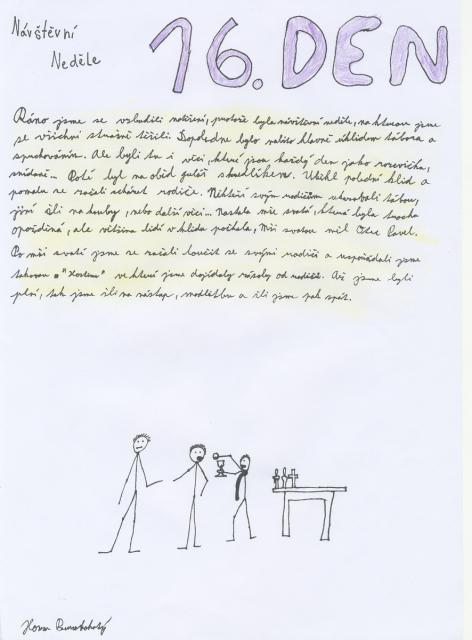 Návštěvní
Neděle
16. DEN
Ráno jsme se vzbudili natěšení, protože byla návštěvní neděle, na kterou jsme
se všichni strašně těšili. Dopoledne bylo nabito hlavně úklidem tábora a
sprchováním. Ale byli tu i věci, které jsou každý den jako rozcvička,
snídaně... Poté byl na oběd guláš s knedlíkem. Utekl polední klid a
pomalu se začali scházet rodiče. Někteří svým rodičům ukazovali tábor,
jiní šli na houby, nebo další věci... Nastala mše svatá, která byla trochu
opožděná, ale většina lidí v klidu počkala, Mši svatou měl Otec Pavel.
Po mši svaté jsme se začali loučit se svými rodiči a uspořádali jsme
takovou "hostinu" ve které jsme dojídaly řízky od rodičů. Až jsme byli
plní, tak jsme šli na nástup, modlitbu a šli jsme pak spát.
Honza